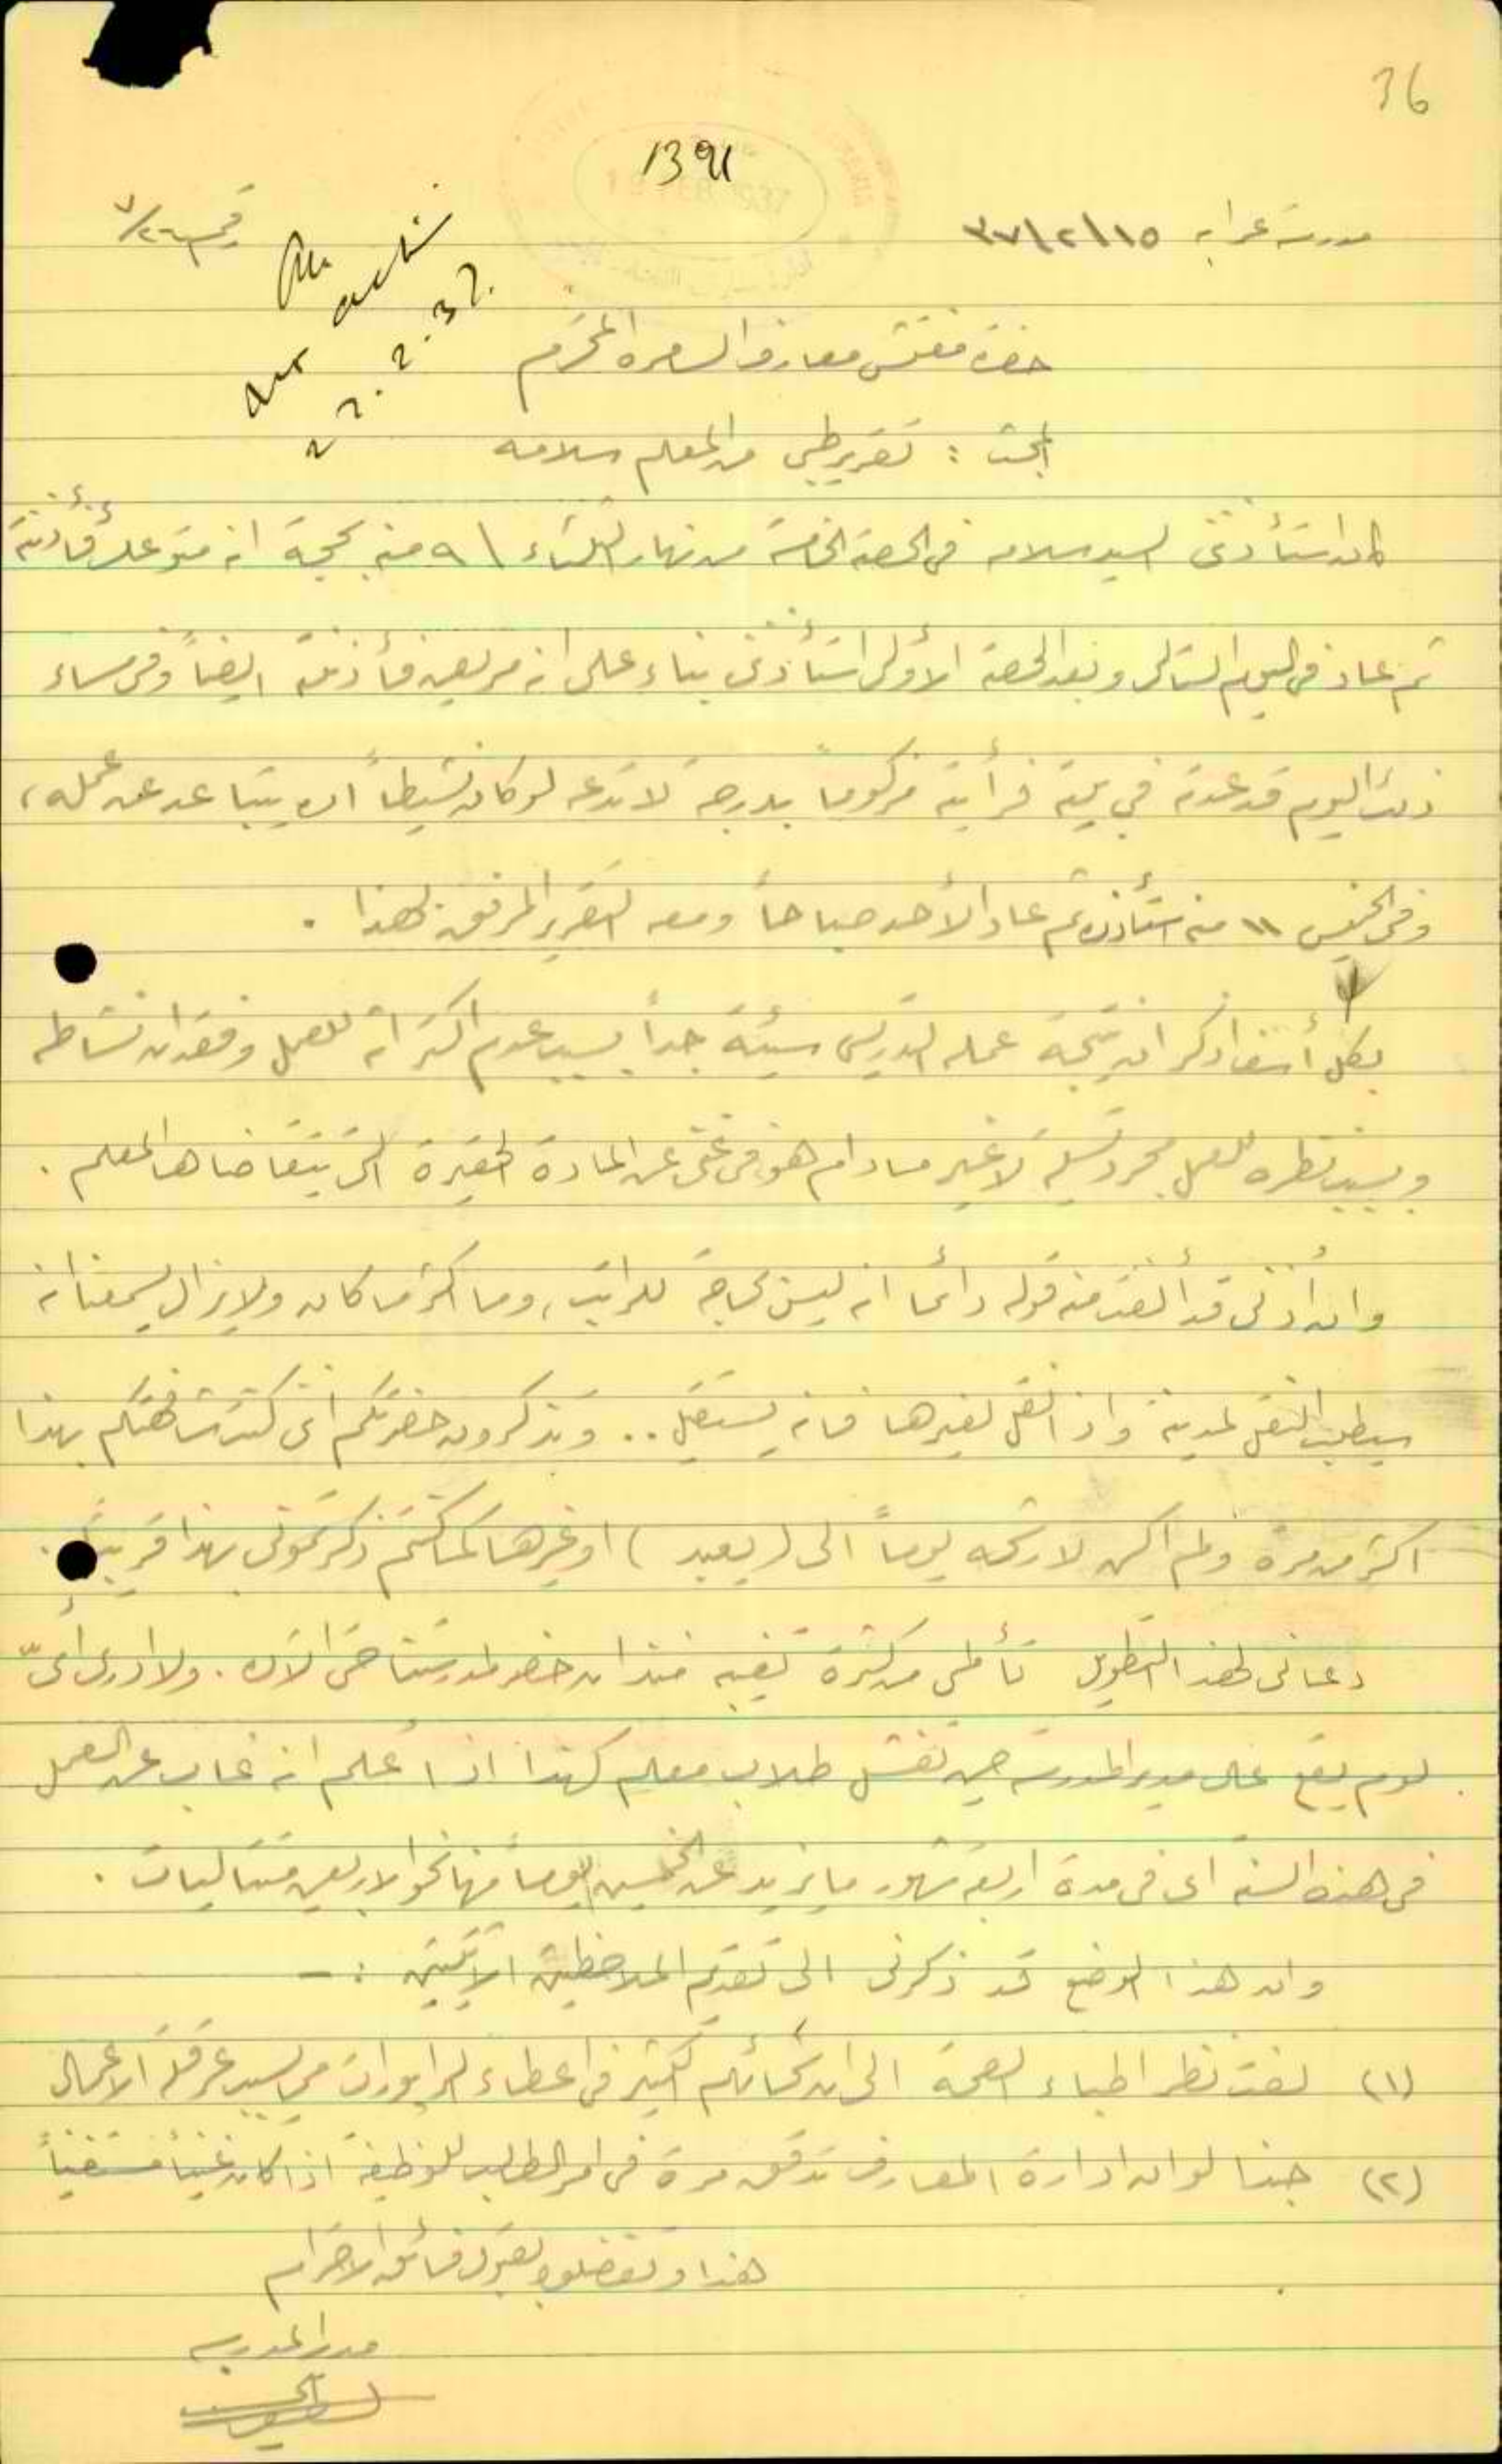 36
1391
مدرسة عرابه ١٥/٢/٣٧
No action
22.2.37.
حضرة مفتش معارف السامره المحترم
المبحث : تقرير طبي من المعلم سلامه
كان استأذن السيد سلامه في الحصة الخامسة من نهار الثلاثاء ٩ منه بحجة انه متوعك فأذنته
ثم عاد في اليوم التالي وبعد الحصة الأولى استأذن بناء على انه مريض فأذنته ايضاً وفي مساء
ذلك اليوم قد عدته في بيته فرأيته مزكوماً بدرجة لا تدعه لو كان نشيطاً ان يتباعد عن عمله،
وفي الخميس ١١ منه استأذن ثم عاد الأحد صباحاً ومعه التقرير المرفق بهذا .
بكل أسف اذكر ان نتيجة عمله التدريسي سيئة جداً بسبب عدم اكتراثه للعمل وفقدان نشاطه
وبسبب نظره للعمل مجرد تسلية لا غير ما دام هو في غنى عن المادة الحقيرة التي يتقاضاها المعلم .
وان اذني قد ألفت منه قوله دائما انه ليس بحاجة للراتب، وما اكثر ما كان ولا يزال يسمعنا انه
سيطلب النقل لمدينة واذا نقل لغيرها فانه يستقيل .. وتذكرون حضرتكم اني كنت شافهتكم بهذا
اكثر من مرة ولم اكن لارشحه يوماً الى ( يعبد ) او غيرها كما كنتم ذكرتموني بهذا قريباً .
دعاني لهذا التطويل تألمي من كثرة تغيبه منذ ان حضر لمدرستنا حتى الآن . ولا ادري أيّ
لوم يقع على مدير المدرسة حين تفشل طلاب معلم كهذا اذا اعلم انه غاب عن العمل
في هذه السنة اى في مدة اربعة شهور ما يزيد عن الخمسين يوماً منها نحو الاربعين متتاليات .
وان هذا الوضع قد ذكرني الى تقديم الملاحظتين الآتيتين :-
(١) لفت نظر اطباء الصحة الى ان سخائهم الكثير في اعطاء الرابورات مما يسبب عرقلة الاعمال
(٢) حبذا لو ان ادارة المعارف تدقق مرة في امر الطالب للوظيفة اذا كان غنياً مستغنياً
هذا وتفضلوا بقبول فائق الاحترام
مدير المدرسة